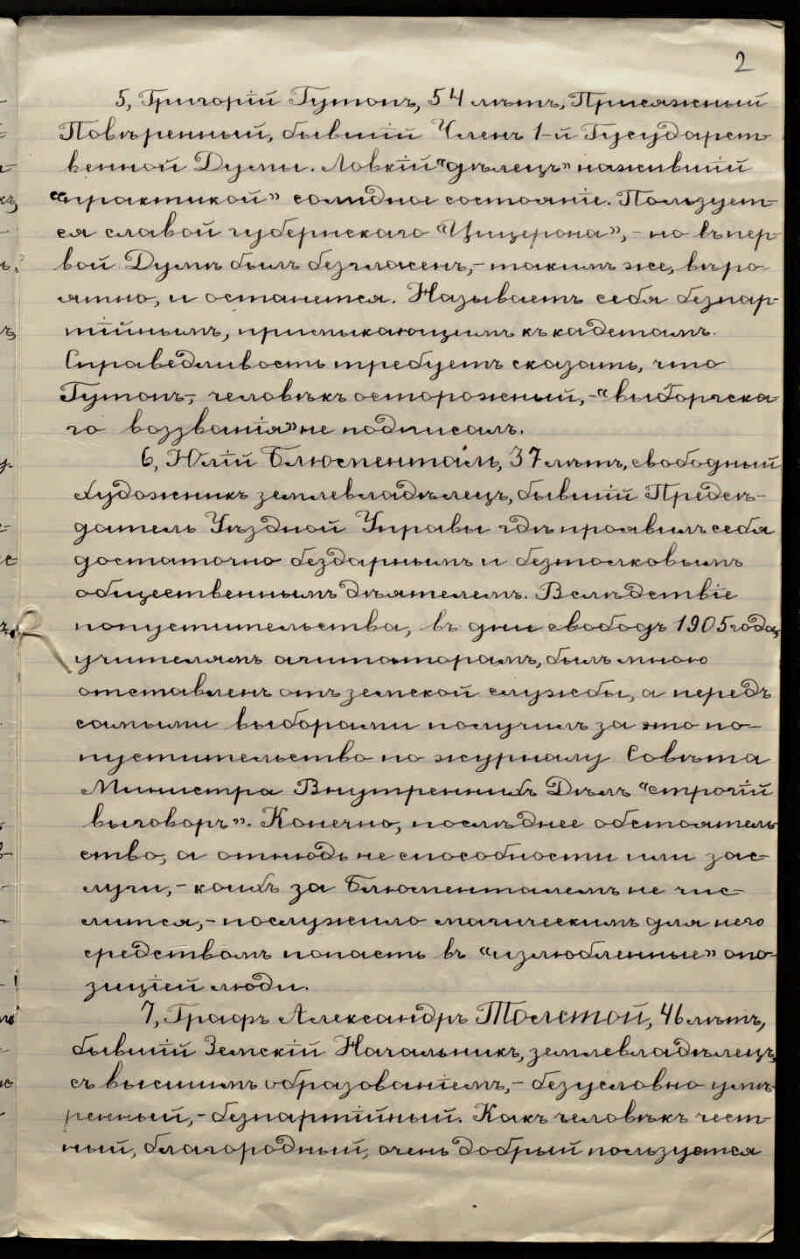 2
5, Григорій Гутопъ, 54 лѣтъ, Присяжный
Повѣренный, бывшій Членъ 1-й Государст-
венной Думы. Ловкій "дѣлецъ" нажившій
"практикой" солидное состояніе. Пользует-
ся славой губернскаго "Цицерона", - но въ пер-
вой Думѣ былъ безгласенъ, - такимъ же, вѣро-
ятно, и останется. Называетъ себя безпар-
тійнымъ, примыкающимъ къ кадетамъ.
Справедливость требуетъ сказать, что
Гутопъ, - человѣкъ осторожный, - "выборгска-
го воззванія" не подписалъ.
6, Юлій Блюменталь, 37 лѣтъ, свободный
художникъ землевладѣлецъ, бывшій Предсѣ-
датель Уѣздной Управы гдѣ проявилъ себя
достаточно бездарнымъ и безтолковымъ
общественнымъ дѣятелемъ. Вслѣдствіе
попустительства, въ дни свободъ 1905 года,
учителямъ агитаторамъ, былъ мною
отставленъ отъ земской службы, а передъ
самыми выборами получилъ за это по-
пустительство по журналу Совѣта
Министра Внутреннихъ Дѣлъ "строгій
выговоръ". Конечно, послѣднее обстоятель-
ство, а отнюдь не способности или зас-
луги, - коихъ за Блюменталемъ не чис-
лится, - послужило магическимъ для него
средствомъ попасть въ "излюбленные" опо-
зиціей люди.
7, Графъ Александръ Толстой, 46 лѣтъ,
бывшій Земскій Начальникъ, землевладѣлецъ,
съ высшимъ образованіемъ, - безусловно умѣ-
ренный, - безпартійный. Какъ человѣкъ чест-
ный, благородный, очень добрый пользуется